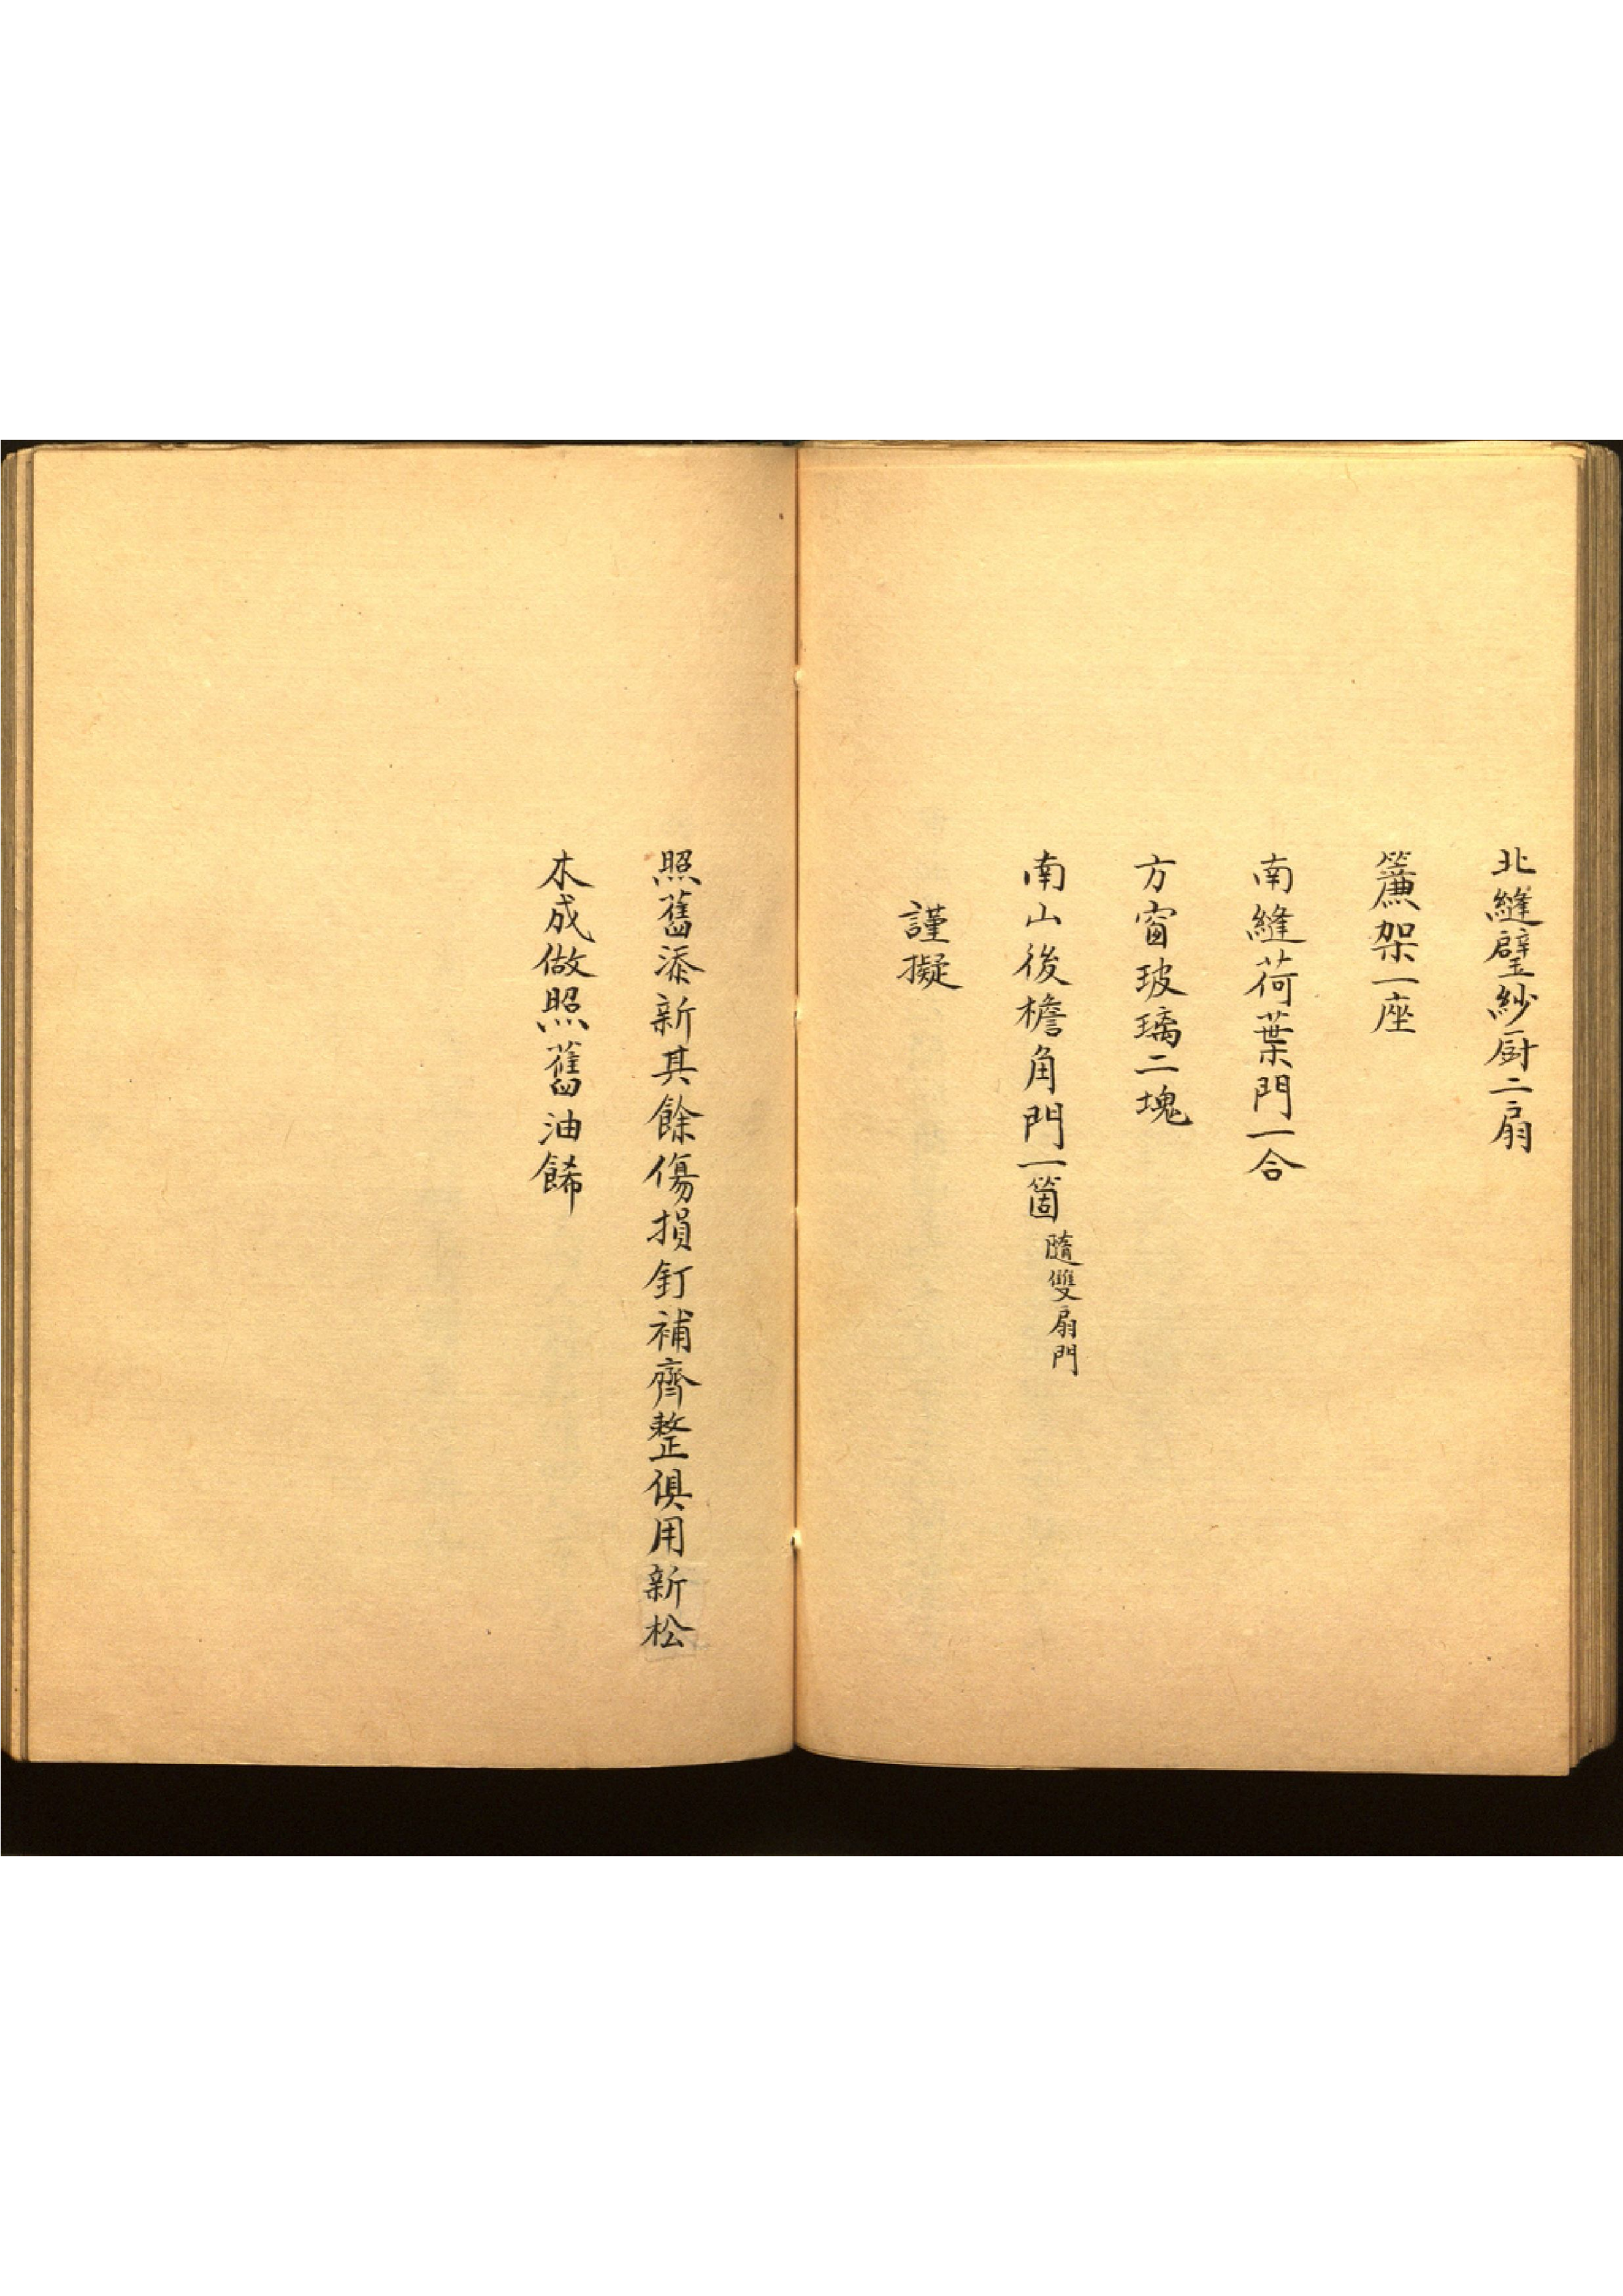 北縫璧紗厨二扇
簾架一座
南縫荷葉門一合
方窗玻璃二塊
南山後檐角門一箇隨雙扇門
謹擬
照舊添新其餘傷損釘補齊整俱用新松
木成做照舊油餙